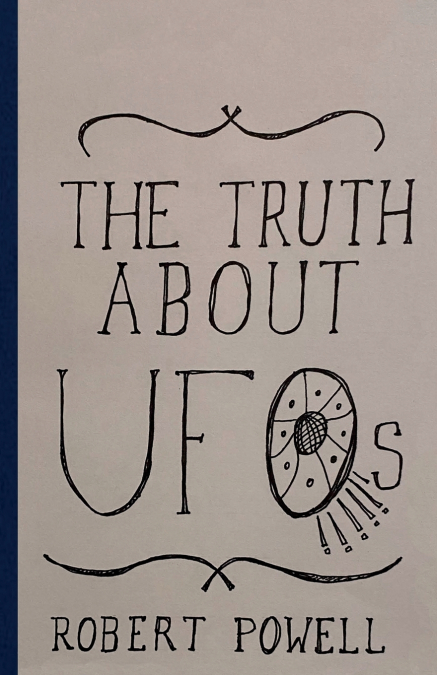 THE TRUTH
ABOUT
UFOs
ROBERT POWELL